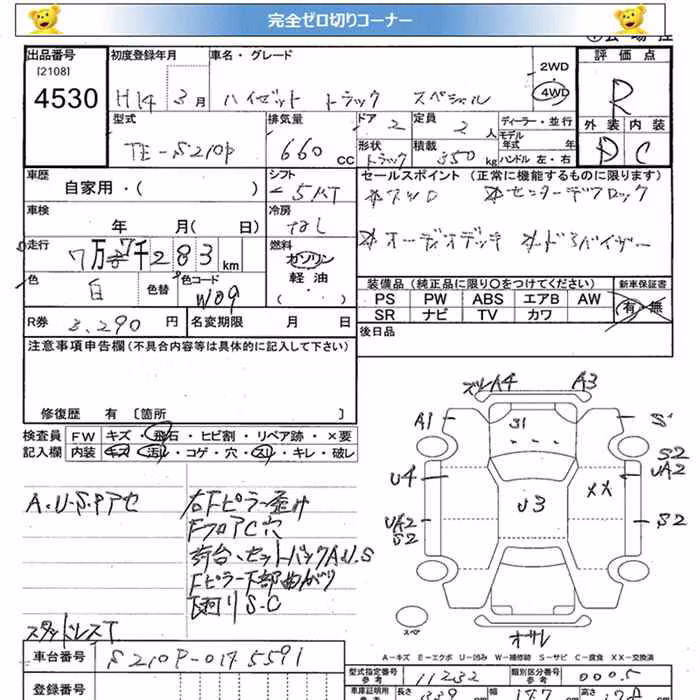 完全ゼロ切りコーナー
出品番号 初度登録年月 車名・グレード 2WD 評価点
[2108]
4530 H14 3月 ハイゼット トラック スペシャル 4WD R
型式 排気量 ドア 2 定員 2人 ディーラー・並行 外装 内装
TE-S210P 660cc 形状 トラック 積載 350kg モデル年式 年 ハンドル 左・右 D C
車歴 シフト セールスポイント (正常に機能するものに限ります)
自家用・( ) 5MT
車検 冷房
年 月( 日) なし
走行 燃料
7万7千283km ガソリン
軽油
( ・ )
色 白 色替 色コード W09
装備品 (純正品に限り〇をつけてください) 新車保証書
PS PW ABS エアB AW 有・無
SR ナビ TV カワ
R券 3,290円 名変期限 月 日
後日品
注意事項申告欄(不具合内容等は具体的に記入して下さい)
修復歴 有 〔箇所 〕
検査員 FW キズ・飛石・ヒビ割・リペア跡・×要
記入欄 内装 キズ・汚れ・コゲ・穴・スレ・キレ・破レ
ズレ A4 A3
A1 S1 S
U4 U3 XX S2 UA2
UA2 S2 S2
A.U.S.Pアセ 右Fピラー歪み
FフロアC穴
荷台、セットバックA.U.S
Fピラー下部曲がり
下廻りS.C
スタッドレスT
スペア
オサレ
A-キズ E-エクボ U-凹み W-補修跡 S-サビ C-腐食 XX-交換済
車台番号 S210P-0175591
型式指定番号 参考 11232 類別区分番号 参考 0005
登録番号
車庫証明用 参考 長さ 339 幅 147 高さ 178